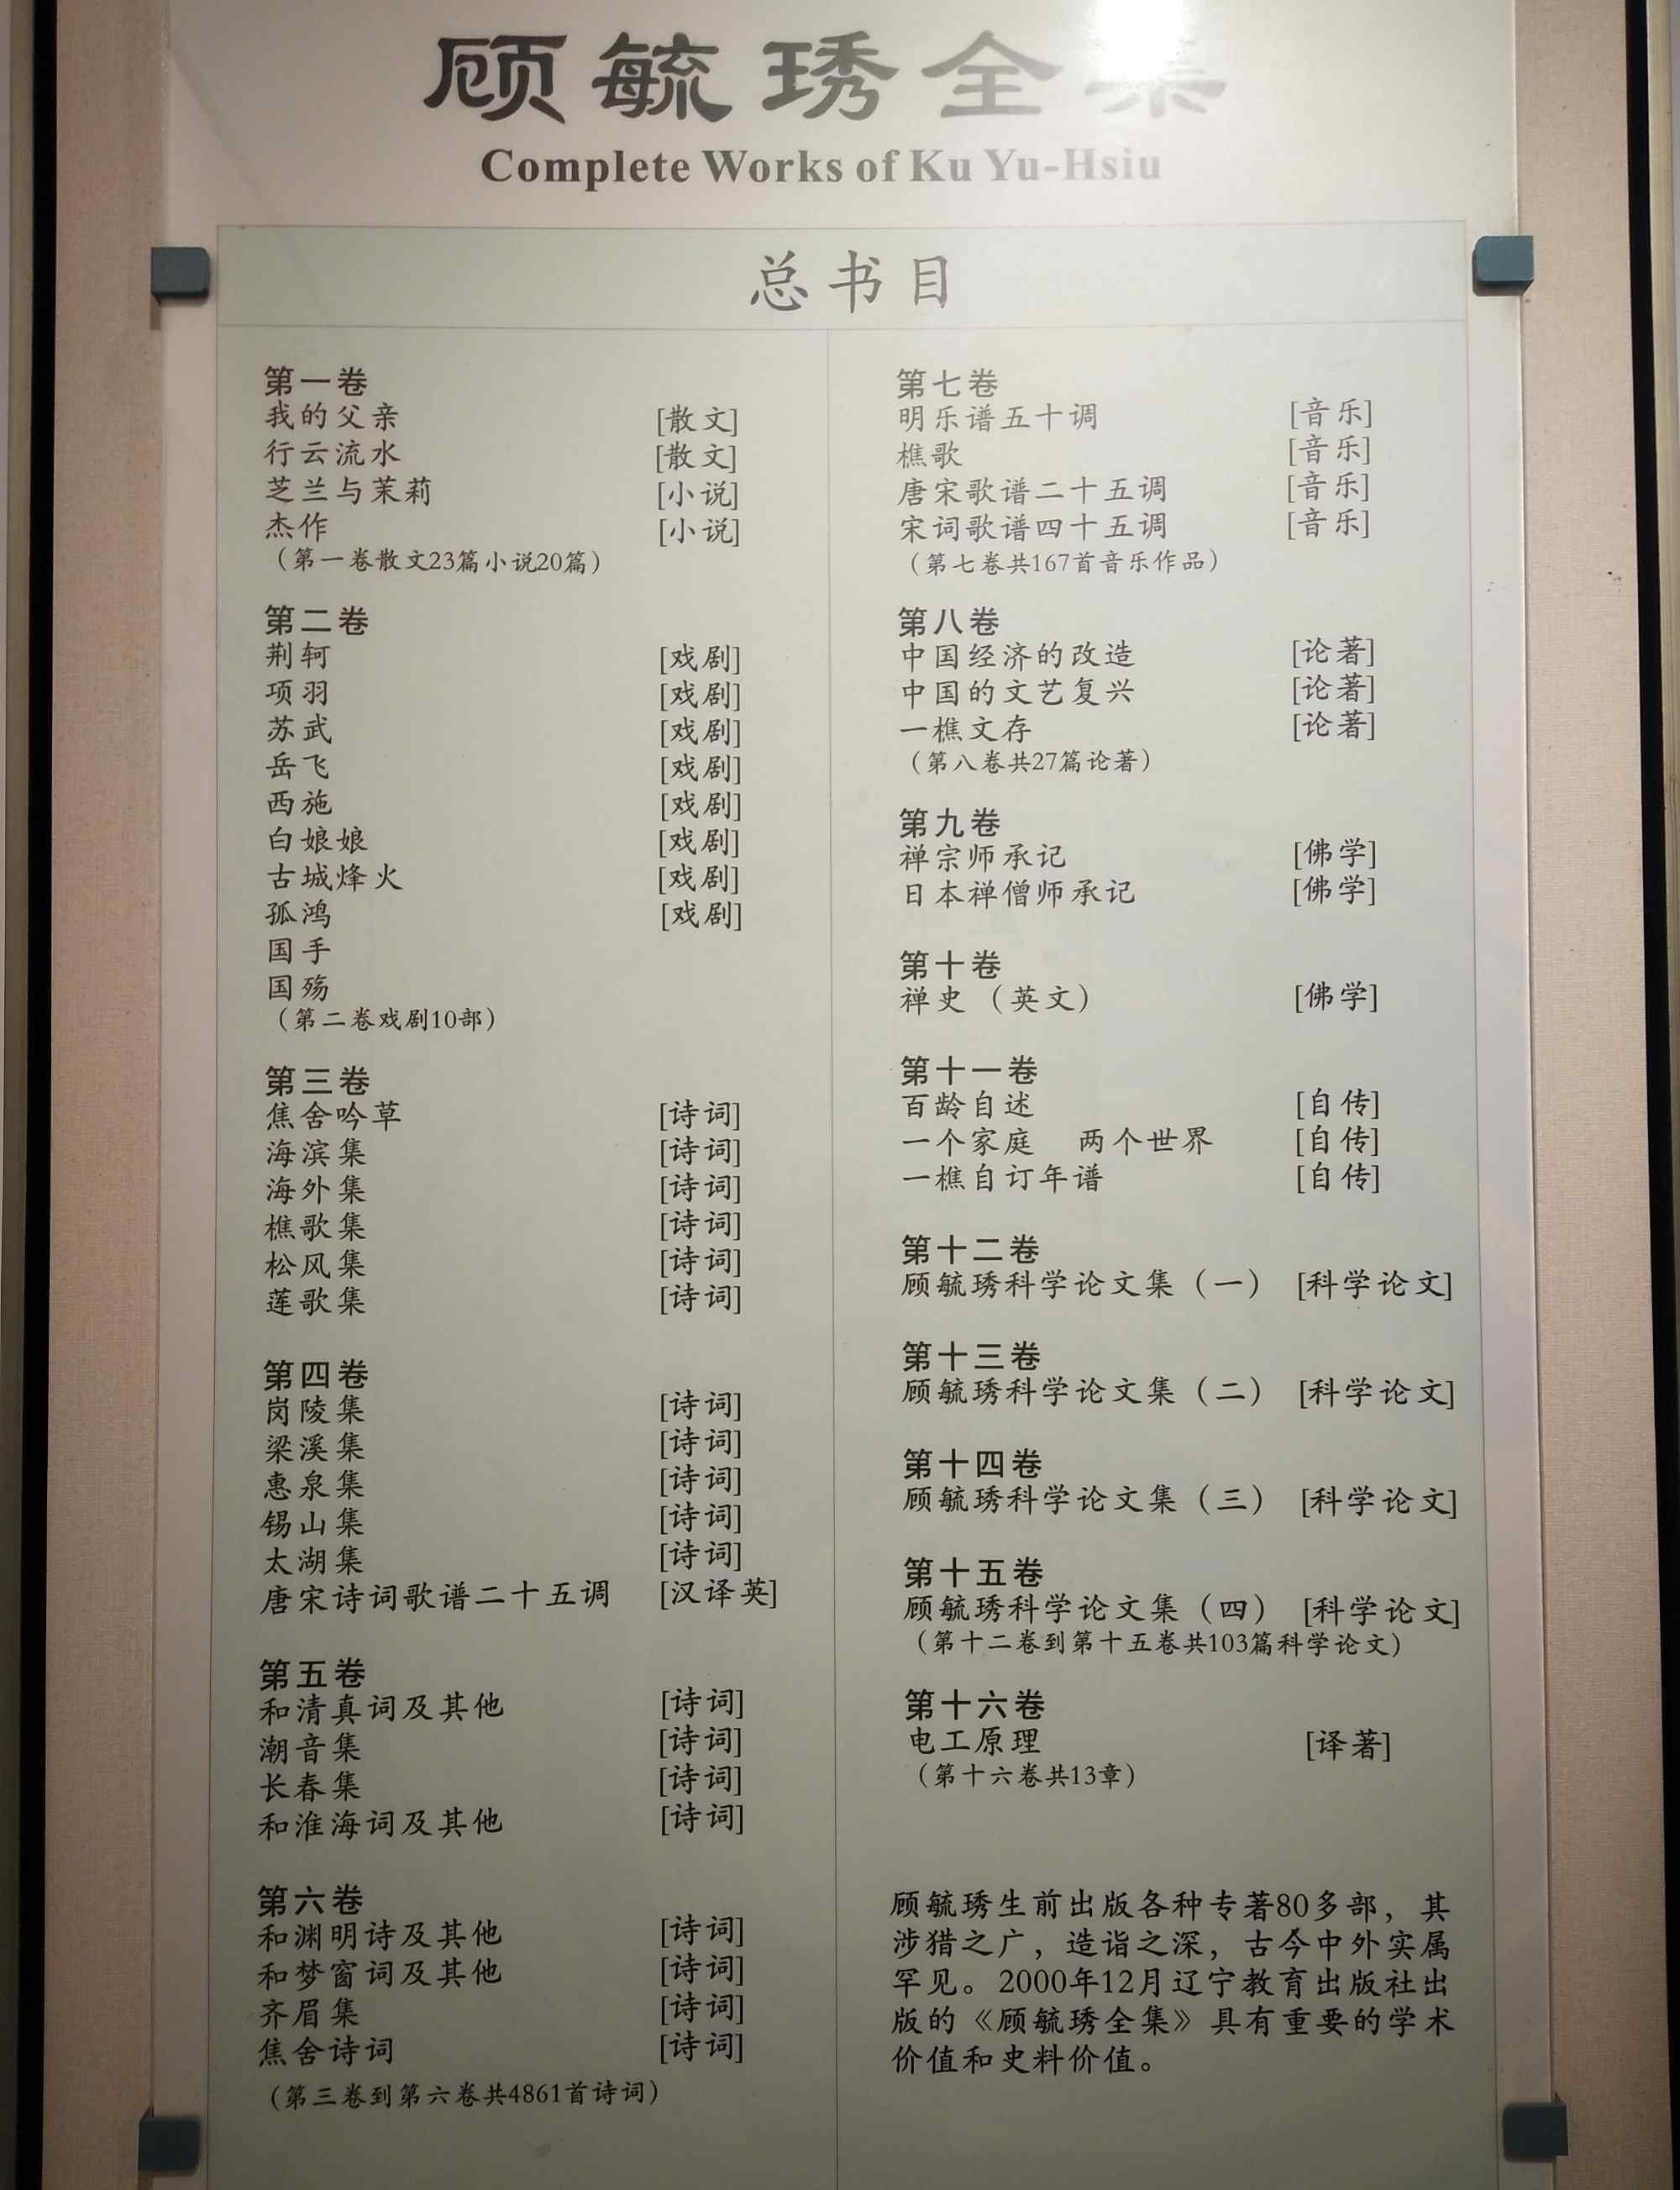 顾毓琇全集
Complete Works of Ku Yu-Hsiu
总书目
第一卷
我的父亲 [散文]
行云流水 [散文]
芝兰与茉莉 [小说]
杰作 [小说]
（第一卷散文23篇小说20篇）
第二卷
荆轲 [戏剧]
项羽 [戏剧]
苏武 [戏剧]
岳飞 [戏剧]
西施 [戏剧]
白娘娘 [戏剧]
古城烽火 [戏剧]
孤鸿 [戏剧]
国手
国殇
（第二卷戏剧10部）
第三卷
焦舍吟草 [诗词]
海滨集 [诗词]
海外集 [诗词]
樵歌集 [诗词]
松风集 [诗词]
莲歌集 [诗词]
第四卷
岗陵集 [诗词]
梁溪集 [诗词]
惠泉集 [诗词]
锡山集 [诗词]
太湖集 [诗词]
唐宋诗词歌谱二十五调 [汉译英]
第五卷
和清真词及其他 [诗词]
潮音集 [诗词]
长春集 [诗词]
和淮海词及其他 [诗词]
第六卷
和渊明诗及其他 [诗词]
和梦窗词及其他 [诗词]
齐眉集 [诗词]
焦舍诗词 [诗词]
（第三卷到第六卷共4861首诗词）
第七卷
明乐谱五十调 [音乐]
樵歌 [音乐]
唐宋歌谱二十五调 [音乐]
宋词歌谱四十五调 [音乐]
（第七卷共167首音乐作品）
第八卷
中国经济的改造 [论著]
中国的文艺复兴 [论著]
一樵文存 [论著]
（第八卷共27篇论著）
第九卷
禅宗师承记 [佛学]
日本禅僧师承记 [佛学]
第十卷
禅史（英文） [佛学]
第十一卷
百龄自述 [自传]
一个家庭 两个世界 [自传]
一樵自订年谱 [自传]
第十二卷
顾毓琇科学论文集（一） [科学论文]
第十三卷
顾毓琇科学论文集（二） [科学论文]
第十四卷
顾毓琇科学论文集（三） [科学论文]
第十五卷
顾毓琇科学论文集（四） [科学论文]
（第十二卷到第十五卷共103篇科学论文）
第十六卷
电工原理 [译著]
（第十六卷共13章）
顾毓琇生前出版各种专著80多部，其
涉猎之广，造诣之深，古今中外实属
罕见。2000年12月辽宁教育出版社出
版的《顾毓琇全集》具有重要的学术
价值和史料价值。